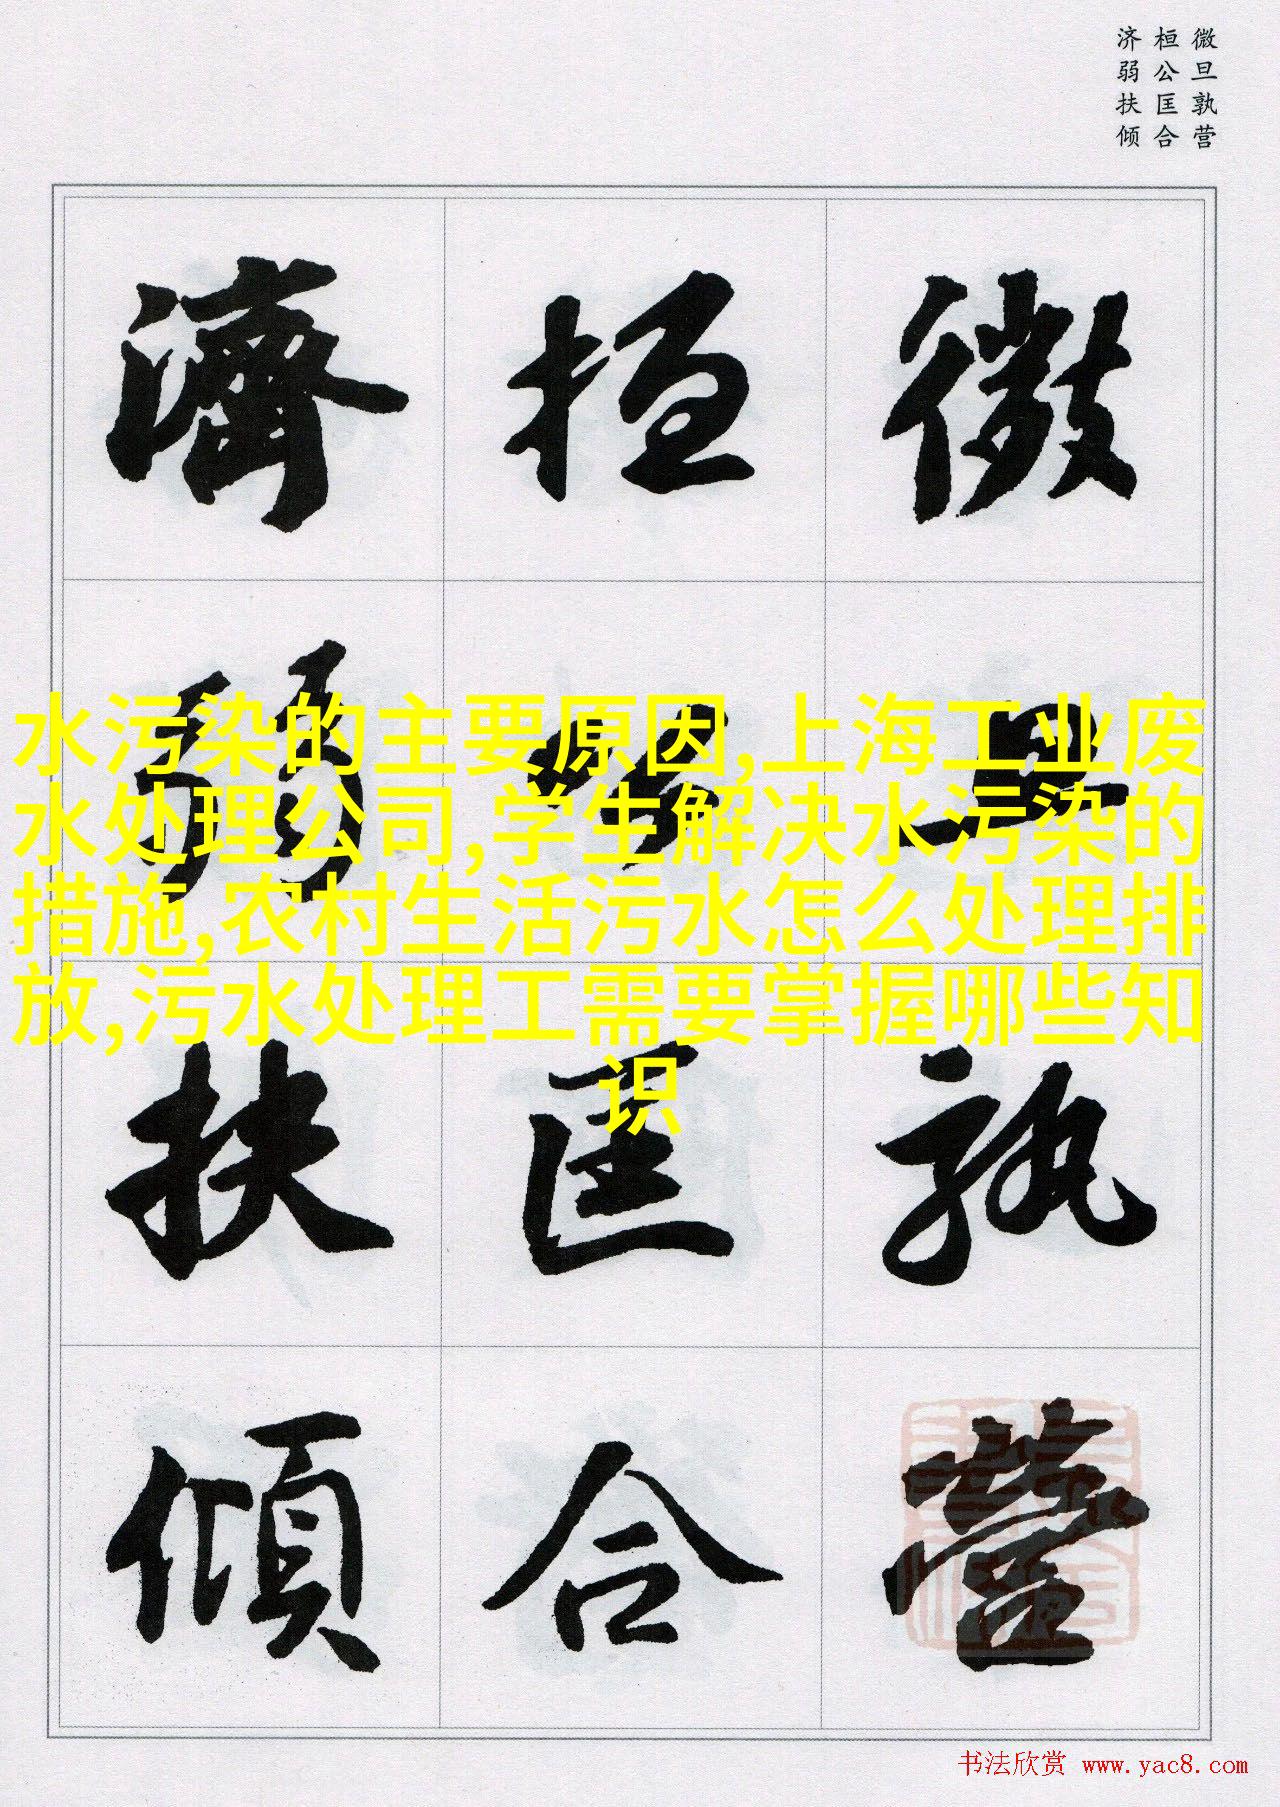 微旦孰营
桓公匡合
济弱扶倾
微旦孰營
桓公匡合
濟弱扶傾
水污染的主要原因,上海工业废
水处理公司,学生解决水污染的
措施,农村生活污水怎么处理排
放,污水处理工需要掌握哪些知
识
书法欣赏 www.yac8.com